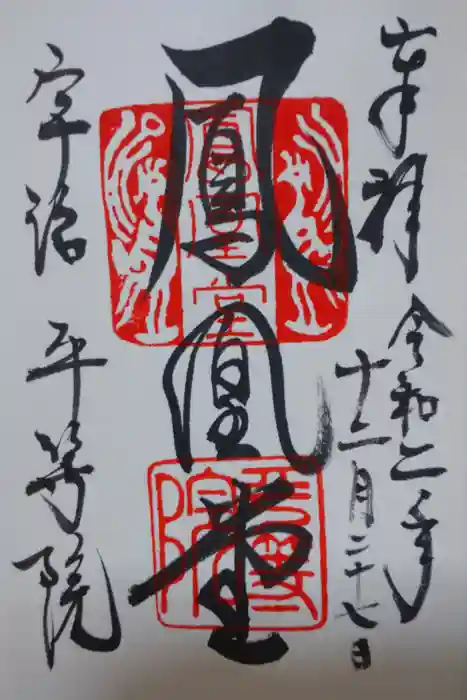 奉拝
令和二年
十二月二十七日
鳳凰堂
鳳凰堂
宇治
平等院